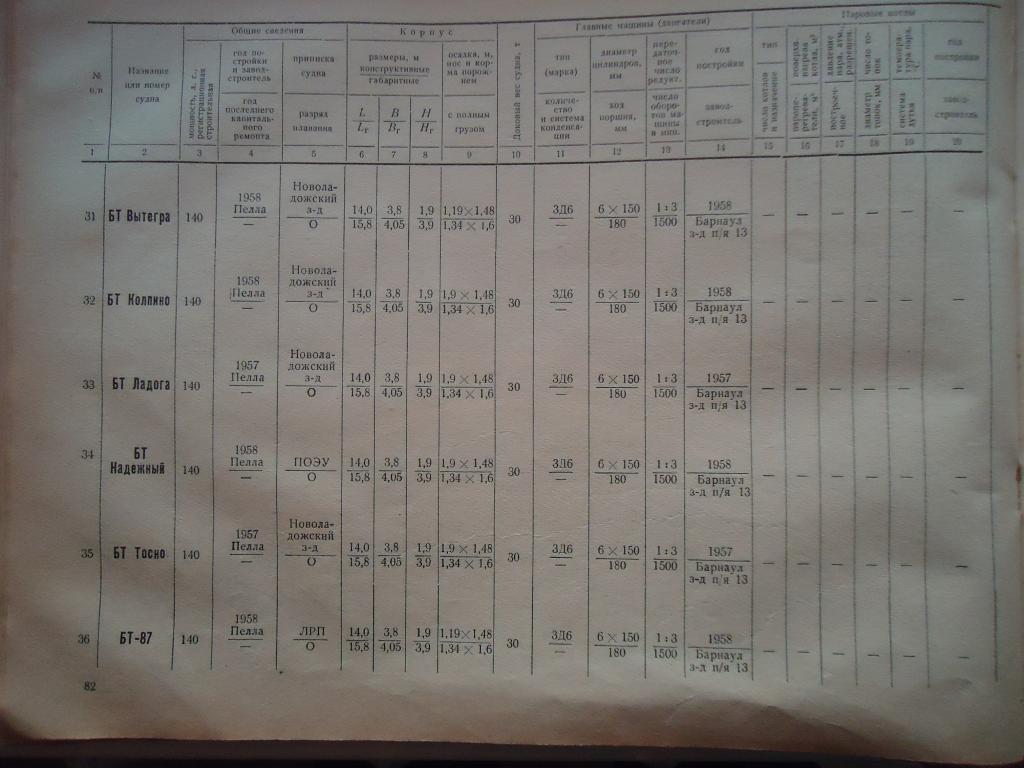 Общие сведения Корпус Главные машины (двигатели) Паровые котлы
№ п.п
Название или номер судна
мощность, л. с., регистрационная строительная
год постройки и завод-строитель
год последнего капитального ремонта
приписка судна
разряд плавания
размеры, м конструктивные габаритные
L B H
Lг Bг Hг
осадка, м, нос и корма порожнем
с полным грузом
Доковый вес судна, т
тип (марка)
количество и система конденсации
диаметр цилиндров, мм
ход поршня, мм
передаточное число редукт.
число оборотов машины в мин.
год постройки
завод-строитель
тип
число котлов и назначение
поверхн. нагрева котла, м²
давление пара, атм., разрешен.
построечное
число топок
диаметр топок, мм
система дутья
год постройки
завод-строитель
1 2 3 4 5 6 7 8 9 10 11 12 13 14 15 16 17 18 19 20
31 БТ Вытегра 140 1958 Пелла — Новоладожский з-д О 14,0 15,8 3,8 4,05 1,9 3,9 1,19×1,48 1,34×1,6 30 3Д6 — 6×150 180 1:3 1500 1958 Барнаул з-д п/я 13 — — — — — —
32 БТ Колпино 140 1958 Пелла — Новоладожский з-д О 14,0 15,8 3,8 4,05 1,9 3,9 1,9×1,48 1,34×1,6 30 3Д6 — 6×150 180 1:3 1500 1958 Барнаул з-д п/я 13 — — — — — —
33 БТ Ладога 140 1957 Пелла — Новоладожский з-д О 14,0 15,8 3,8 4,05 1,9 3,9 1,9×1,48 1,34×1,6 30 3Д6 — 6×150 180 1:3 1500 1957 Барнаул з-д п/я 13 — — — — — —
34 БТ Надежный 140 1958 Пелла — ПОЭУ О 14,0 15,8 3,8 4,05 1,9 3,9 1,9×1,48 1,34×1,6 30 3Д6 — 6×150 180 1:3 1500 1958 Барнаул з-д п/я 13 — — — — — —
35 БТ Тосно 140 1957 Пелла — Новоладожский з-д О 14,0 15,8 3,8 4,05 1,9 3,9 1,9×1,48 1,34×1,6 30 3Д6 — 6×150 180 1:3 1500 1957 Барнаул з-д п/я 13 — — — — — —
36 БТ-87 140 1958 Пелла — ЛРП О 14,0 15,8 3,8 4,05 1,9 3,9 1,19×1,48 1,34×1,6 30 3Д6 — 6×150 180 1:3 1500 1958 Барнаул з-д п/я 13 — — — — — —
82